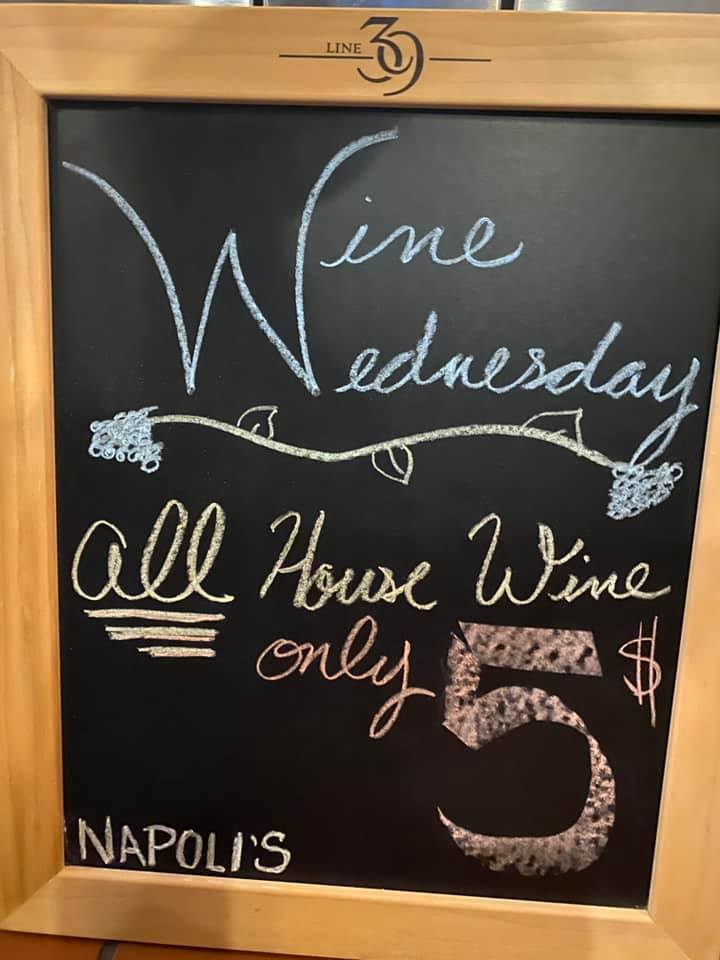 LINE 39
Wine
Wednesday
all House Wine
only 5$
NAPOLI'S